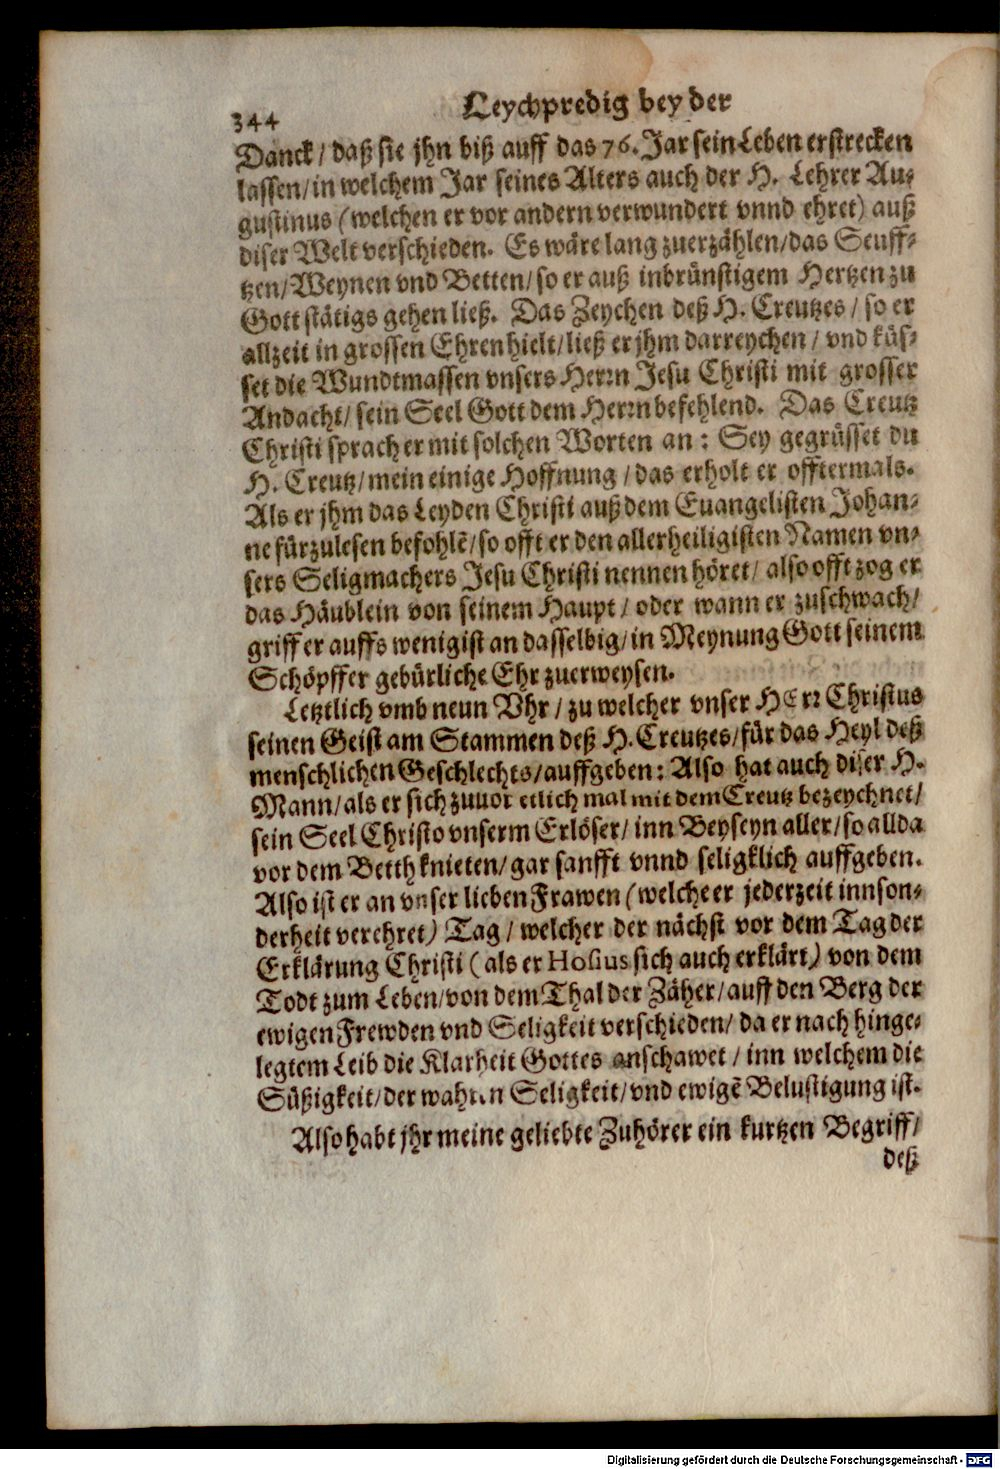 344
Leychpredig bey der
Danck / daß sie jhn biß auff das 76. Jar sein Leben erstrecken
lassen / in welchem Jar seines Alters auch der H. Lehrer Au-
gustinus (welchen er vor andern verwundert vnnd ehret) auß
diser Welt verschieden. Es wäre lang zuerzählen / das Seuff-
tzen / Weynen vnd Betten / so er auß inbrünstigem Hertzen zu
Gott stätigs gehen ließ. Das Zeychen deß H. Creutzes / so er
allzeit in grossen Ehren hielt / ließ er jhm darreychen / vnd küs-
set die Wundtmassen vnsers Herrn Jesu Christi mit grosser
Andacht / sein Seel Gott dem Herrn befehlend. Das Creutz
Christi sprach er mit solchen Worten an : Sey gegrüsset du
H. Creutz / mein einige Hoffnung / das erholt er offtermals.
Als er jhm das Leyden Christi auß dem Euangelisten Johan-
ne fürzulesen befohlē / so offt er den allerheiligisten Namen vn-
sers Seligmachers Jesu Christi nennen höret / also offt zog er
das Häublein von seinem Haupt / oder wann er zuschwach /
griff er auffs wenigist an dasselbig / in Meynung Gott seinem
Schöpffer gebürliche Ehr zuerweysen.
Letztlich vmb neun Vhr / zu welcher vnser HErr Christus
seinen Geist am Stammen deß H. Creutzes / für das Heyl deß
menschlichen Geschlechts / auffgeben : Also hat auch diser H.
Mann / als er sich zuuor etlich mal mit dem Creutz bezeychnet /
sein Seel Christo vnserm Erlöser / inn Beyseyn aller / so allda
vor dem Betth knieten / gar sanfft vnnd seligklich auffgeben.
Also ist er an vnser lieben Frawen (welche er jederzeit innson-
derheit verehret) Tag / welcher der nächst vor dem Tag der
Erklärung Christi (als er Hosius sich auch erklärt) von dem
Todt zum Leben / von dem Thal der Zäher / auff den Berg der
ewigen Frewden vnd Seligkeit verschieden / da er nach hinge-
legtem Leib die Klarheit Gottes anschawet / inn welchem die
Süßigkeit / der wahren Seligkeit / vnd ewigē Belustigung ist.
Also habt jhr meine geliebte Zuhörer ein kurtzen Begriff /
deß
Digitalisierung gefördert durch die Deutsche Forschungsgemeinschaft - DFG